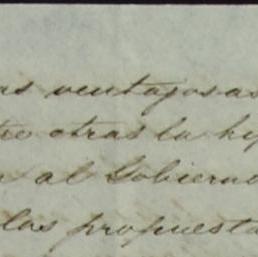 as ventajosas
tre otras la hip
n al Gobierno
las propuesta